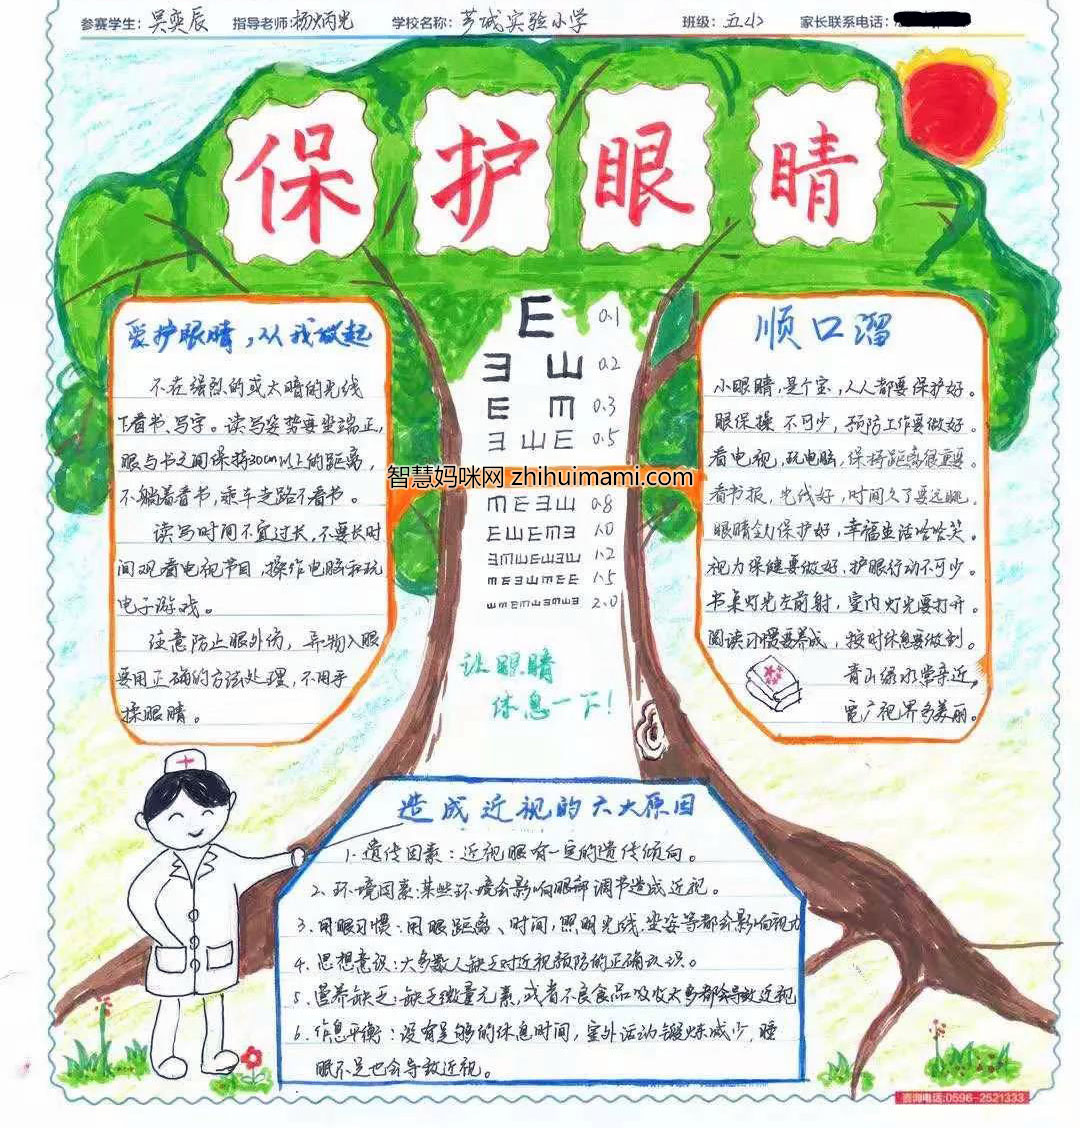 参赛学生: 吴奕辰 指导老师: 杨炳光 学校名称: 芗城实验小学 班级: 五 家长联系电话:
保护眼睛
爱护眼睛,从我做起
不在强烈的或太暗的光线
下看书、写字。读写姿势要坐端正,
眼与书之间保持30cm以上的距离,
不躺着看书,乘车走路不看书。
读写时间不宜过长,不要长时
间观看电视节目,操作电脑和玩
电子游戏。
注意防止眼外伤,异物入眼
要用正确的方法处理,不用手
揉眼睛。
E 0.1
E Ш 0.2
E m 0.3
E Ш E 0.5
0.8
1.0
1.2
1.5
2.0
让眼睛
休息一下!
智慧妈咪网 zhihuimami.com
顺口溜
小眼睛,是个宝,人人都要保护好。
眼保操 不可少,预防工作要做好。
看电视,玩电脑,保持距离很重要。
看书报,光线好,时间久了要远眺。
眼睛保护好,幸福生活哈哈笑。
视力保健要做好,护眼行动不可少。
书桌灯光左前射,室内灯光要打开。
阅读习惯要养成,按时休息要做到。
青山绿水常亲近,
宽广视界多美丽。
造成近视的六大原因
1.遗传因素:近视眼有一定的遗传倾向。
2.环境因素:某些环境会影响眼部调节造成近视。
3.用眼习惯:用眼距离、时间,照明光线,坐姿等都会影响视力
4.思想意识:大多数人缺乏对近视预防的正确认识。
5.营养缺乏:缺乏微量元素,或者不良食品吸收太多都会导致近视
6.作息平衡:没有足够的休息时间,室外活动锻炼减少,睡
眠不足也会导致近视。
咨询电话:0596-2521333